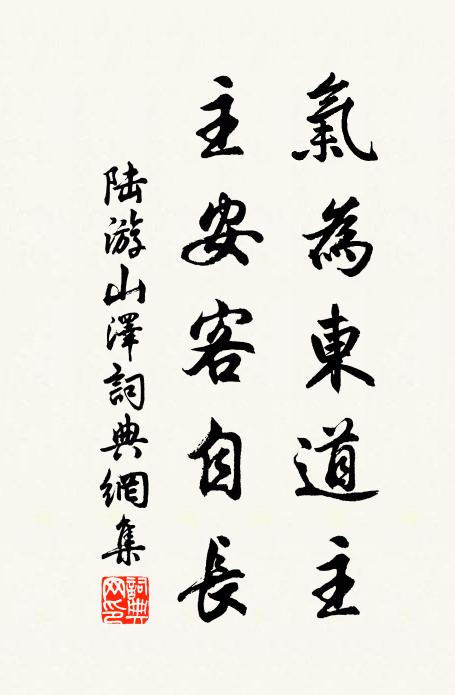 氣為東道主
主安客自長
陆游山澤詞典網集
詞典
网印